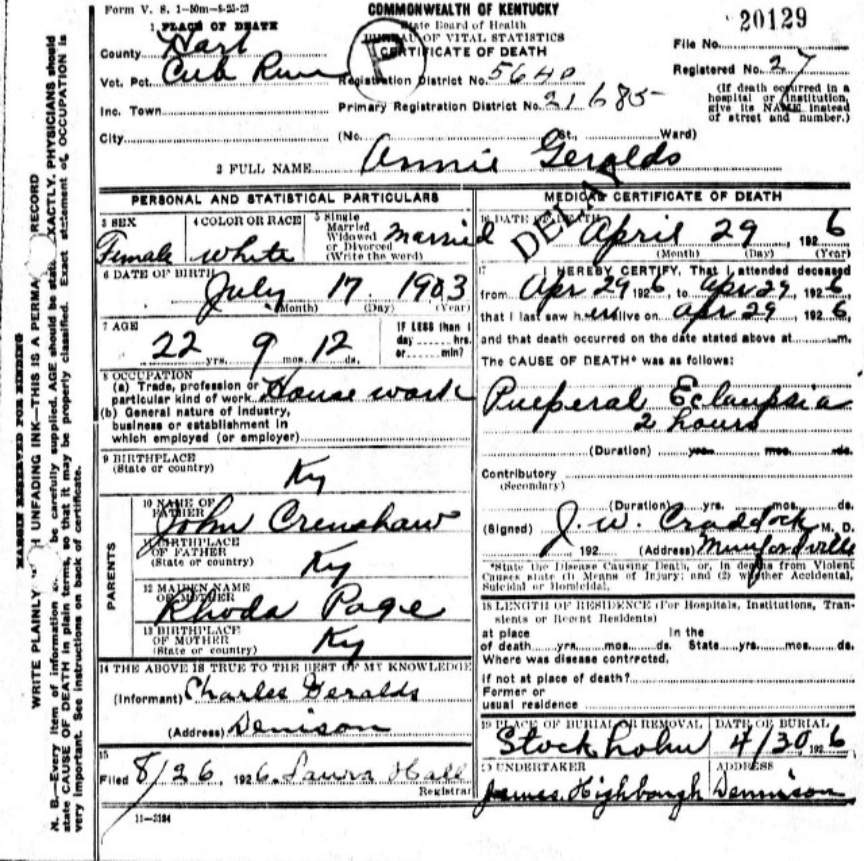 Form V. S. 1-50m-8-25-23
COMMONWEALTH OF KENTUCKY
State Board of Health
BUREAU OF VITAL STATISTICS
CERTIFICATE OF DEATH
20129
File No.
Registered No. 27
(If death occurred in a hospital or institution, give its NAME instead of street and number.)
1 PLACE OF DEATH
County Hart
Vot. Pct. Cub Run
Registration District No. 5640
Inc. Town
Primary Registration District No. 21685
City (No. St., Ward)
2 FULL NAME Annie Geralds
PERSONAL AND STATISTICAL PARTICULARS
3 SEX Female
4 COLOR OR RACE white
5 Single Married Widowed or Divorced (Write the word) Married
6 DATE OF BIRTH July 17 1903
(Month) (Day) (Year)
7 AGE 22 yrs. 9 mos. 12 ds.
IF LESS than 1 day hrs. or min?
8 OCCUPATION
(a) Trade, profession or particular kind of work House work
(b) General nature of industry, business or establishment in which employed (or employer)
9 BIRTHPLACE
(State or country) Ky
PARENTS
10 NAME OF FATHER John Crenshaw
11 BIRTHPLACE OF FATHER
(State or country) Ky
12 MAIDEN NAME OF MOTHER Rhoda Page
13 BIRTHPLACE OF MOTHER
(State or country) Ky
14 THE ABOVE IS TRUE TO THE BEST OF MY KNOWLEDGE
(Informant) Charles Geralds
(Address) Denison
15
Filed 8/26, 1926. Laura Hall
Registrar
11-3184
MEDICAL CERTIFICATE OF DEATH
16 DATE OF DEATH April 29, 1926
(Month) (Day) (Year)
17 I HEREBY CERTIFY, That I attended deceased
from Apr 29 1926, to Apr 29, 1926,
that I last saw her alive on Apr 29, 1926,
and that death occurred on the date stated above at m.
The CAUSE OF DEATH* was as follows:
Pueperal Eclampsia
2 hours
(Duration) yrs. mos. ds.
Contributory
(Secondary)
(Duration) yrs. mos. ds.
(Signed) J. W. Craddock M. D.
, 192 (Address) Munfordville
*State the Disease Causing Death, or, in deaths from Violent Causes state (1) Means of Injury; and (2) whether Accidental, Suicidal or Homicidal.
18 LENGTH OF RESIDENCE (For Hospitals, Institutions, Transients or Recent Residents)
at place of death yrs. mos. ds. In the State yrs. mos. ds.
Where was disease contrected,
if not at place of death?
Former or
usual residence
19 PLACE OF BURIAL OR REMOVAL Stockholm
DATE OF BURIAL 4/30 1926
20 UNDERTAKER James Highbaugh
ADDRESS Dennison
MARGIN RESERVED FOR BINDING
WRITE PLAINLY UNFADING INK—THIS IS A PERMA RECORD
N. B.—Every item of information be carefully supplied. AGE should be state EXACTLY. PHYSICIANS should
state CAUSE OF DEATH in plain terms, so that it may be properly classified. Exact statement of OCCUPATION is
very important. See instructions on back of certificate.